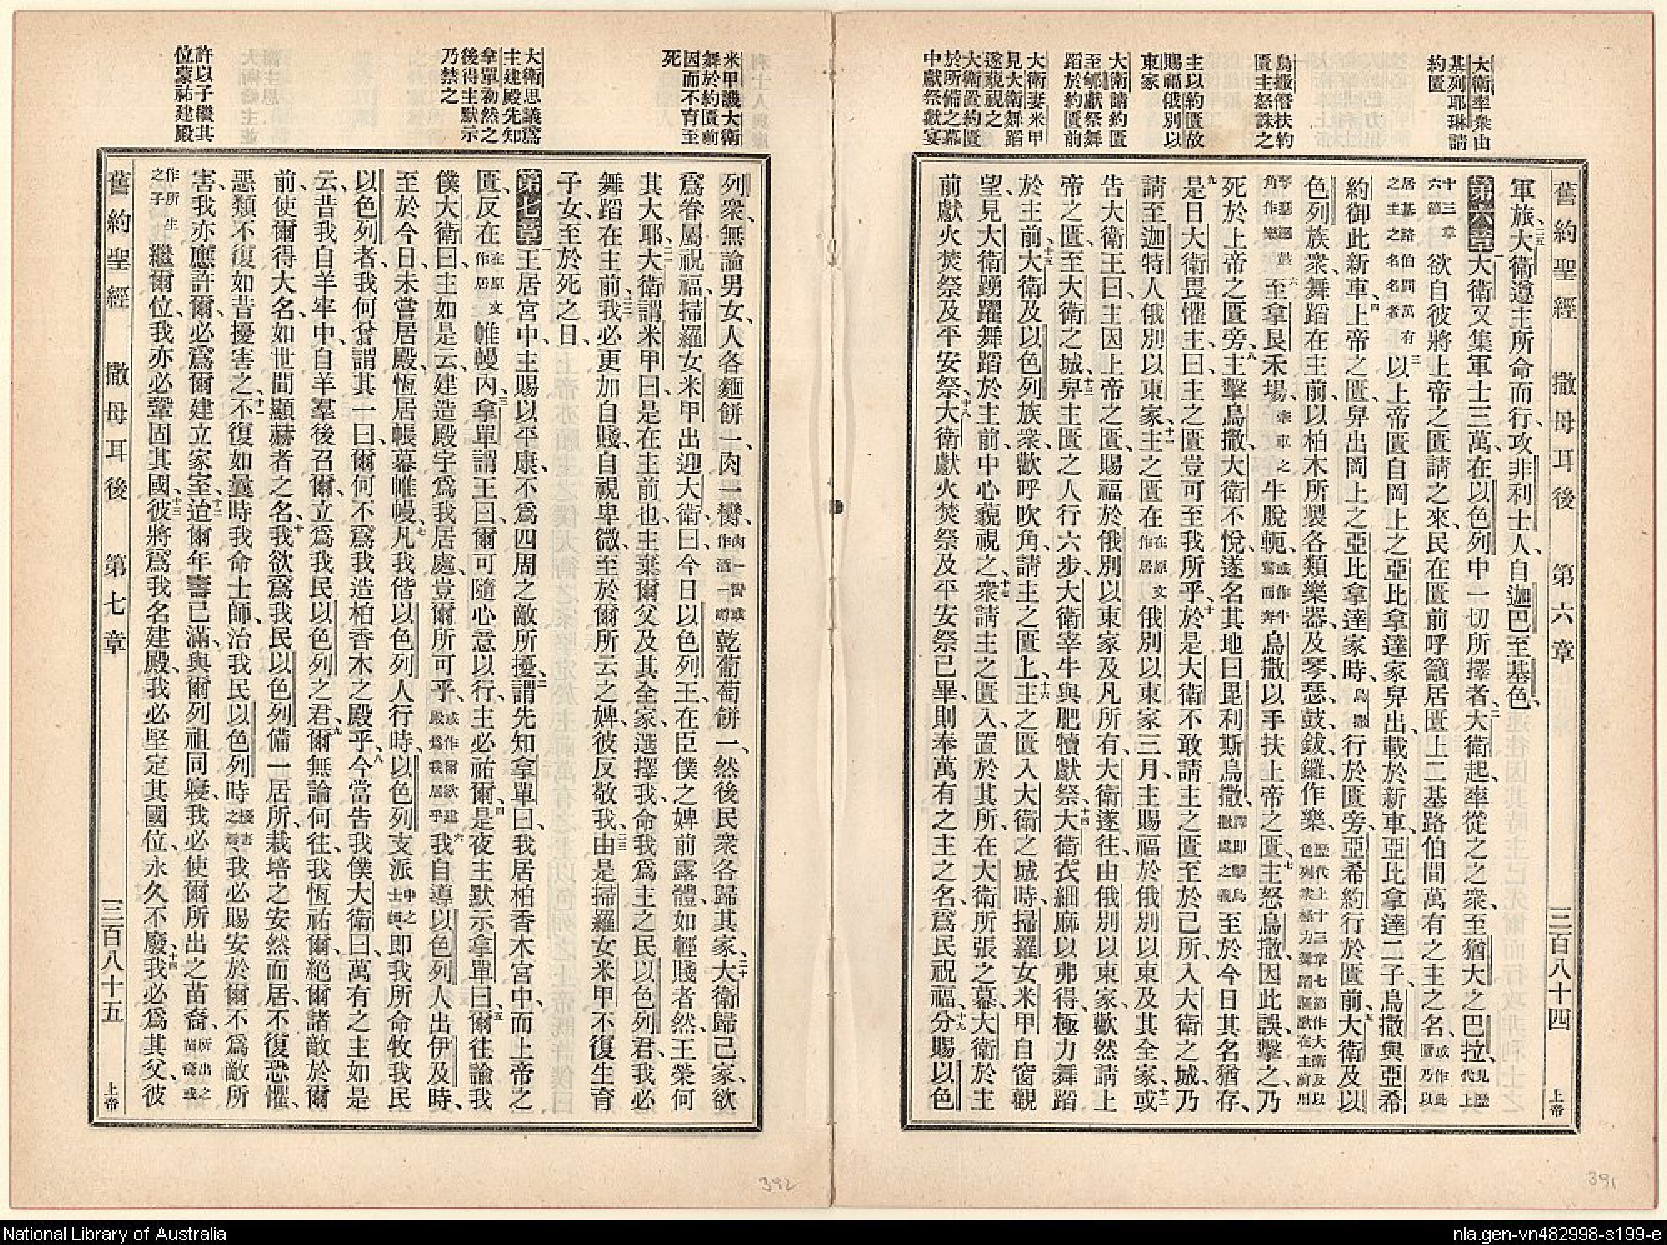 舊約聖經 撒母耳後 第六章 三百八十四 上帝
大衛率衆由
基列耶琳請
約匱
烏撒僭扶約
匱主怒誅之
主以約匱故
賜福俄別以
東家
大衛請約匱
至郇獻祭舞
蹈於約匱前
大衛妻米甲
見大衛舞蹈
遂藐視之
大衛置約匱
於所備之幕
中獻祭獻宴
軍旅二五大衛遵主所命而行攻非利士人自迦巴至基色
第六章一大衛又集軍士三萬在以色列中一切所擇者二大衛起率從之之衆至猶大之巴拉見歷代上
十三章六節欲自彼將上帝之匱請之來民在匱前呼籲居匱上二基路伯間萬有之主之名或作此匱乃以
居基路伯間萬有之主之名名者三以上帝匱自岡上之亞比拿達家舁出載於新車亞比拿達二子烏撒與亞希
約御此新車四上帝之匱舁出岡上之亞比拿達家時烏撒行於匱旁亞希約行於匱前五大衛及以
色列族衆舞蹈在主前以柏木所製各類樂器及琴瑟鼓鈸鑼作樂歷代上十三章七節作大衛及以色列衆極力舞蹈謳歌在主前用
琴瑟鼗鼓角作樂六至拿艮禾場牽車之牛脫軛或作牛驚而奔烏撒以手扶上帝之匱七主怒烏撒因此誤擊之乃
死於上帝之匱旁八主擊烏撒大衛不悅遂名其地曰毘利斯烏撒譯即擊烏撒處之義至於今日其名猶存
九是日大衛畏懼主曰主之匱豈可至我所乎十於是大衛不敢請主之匱至於己所入大衛之城乃
請至迦特人俄別以東家十一主之匱在在原文作居俄別以東家三月主賜福於俄別以東及其全家十二或
告大衛王曰主因上帝之匱賜福於俄別以東家及凡所有大衛遂往由俄別以東家歡然請上
帝之匱至大衛之城十三舁主匱之人行六步大衛宰牛與肥犢獻祭十四大衛衣細麻以弗得極力舞蹈
於主前十五大衛及以色列族衆歡呼吹角請主之匱上十六主之匱入大衛之城時掃羅女米甲自窗觀
望見大衛踴躍舞蹈於主前中心藐視之十七衆請主之匱入置於其所在大衛所張之幕大衛於主
前獻火焚祭及平安祭十八大衛獻火焚祭及平安祭已畢則奉萬有之主之名爲民祝福十九分賜以色
391
米甲譏大衛
舞於約匱前
因而不育至
死
大衛思議爲
主建殿先知
拿單初然之
後得主默示
乃禁之
許以子繼其
位蒙祐建殿
列衆無論男女人各麵餅一肉一臠肉一臠或作酒一罇乾葡萄餅一然後民衆各歸其家二十大衛歸己家欲
爲眷屬祝福掃羅女米甲出迎大衛曰今日以色列王在臣僕之婢前露體如輕賤者然王榮何
其大耶二一大衛謂米甲曰是在主前也主棄爾父及其全家選擇我命我爲主之民以色列君我必
舞蹈在主前二二我必更加自賤自視卑微至於爾所云之婢彼反敬我二三由是掃羅女米甲不復生育
子女至於死之日
第七章一王居宮中主賜以平康不爲四周之敵所擾二謂先知拿單曰我居柏香木宮中而上帝之
匱反在在原文作居帷幔內三拿單謂王曰爾可隨心意以行主必祐爾四是夜主默示拿單曰五爾往諭我
僕大衛曰主如是云建造殿宇爲我居處豈爾所可乎或作爾欲建殿爲我居乎六我自導以色列人出伊及時
至於今日未嘗居殿恆居帳幕帷幔七凡我偕以色列人行時以色列支派中之士師即我所命牧我民
以色列者我何嘗謂其一曰爾何不爲我造柏香木之殿乎八今當告我僕大衛曰萬有之主如是
云昔我自羊牢中自羊羣後召爾立爲我民以色列之君九爾無論何往我恆祐爾絕爾諸敵於爾
前使爾得大名如世間顯赫者之名十我欲爲我民以色列備一居所栽培之安然而居不復恐懼
惡類不復如昔擾害之十一不復如曩時我命士師治我民以色列時擾害之我必賜安於爾不爲敵所
害我亦應許爾必爲爾建立家室十二迨爾年壽已滿與爾列祖同寢我必使爾所出之苗裔所出之苗裔或
作所生之子繼爾位我亦必鞏固其國十三彼將爲我名建殿我必堅定其國位永久不廢十四我必爲其父彼
舊約聖經 撒母耳後 第七章 三百八十五 上帝
392
National Library of Australia
nla.gen-vn482998-s199-e